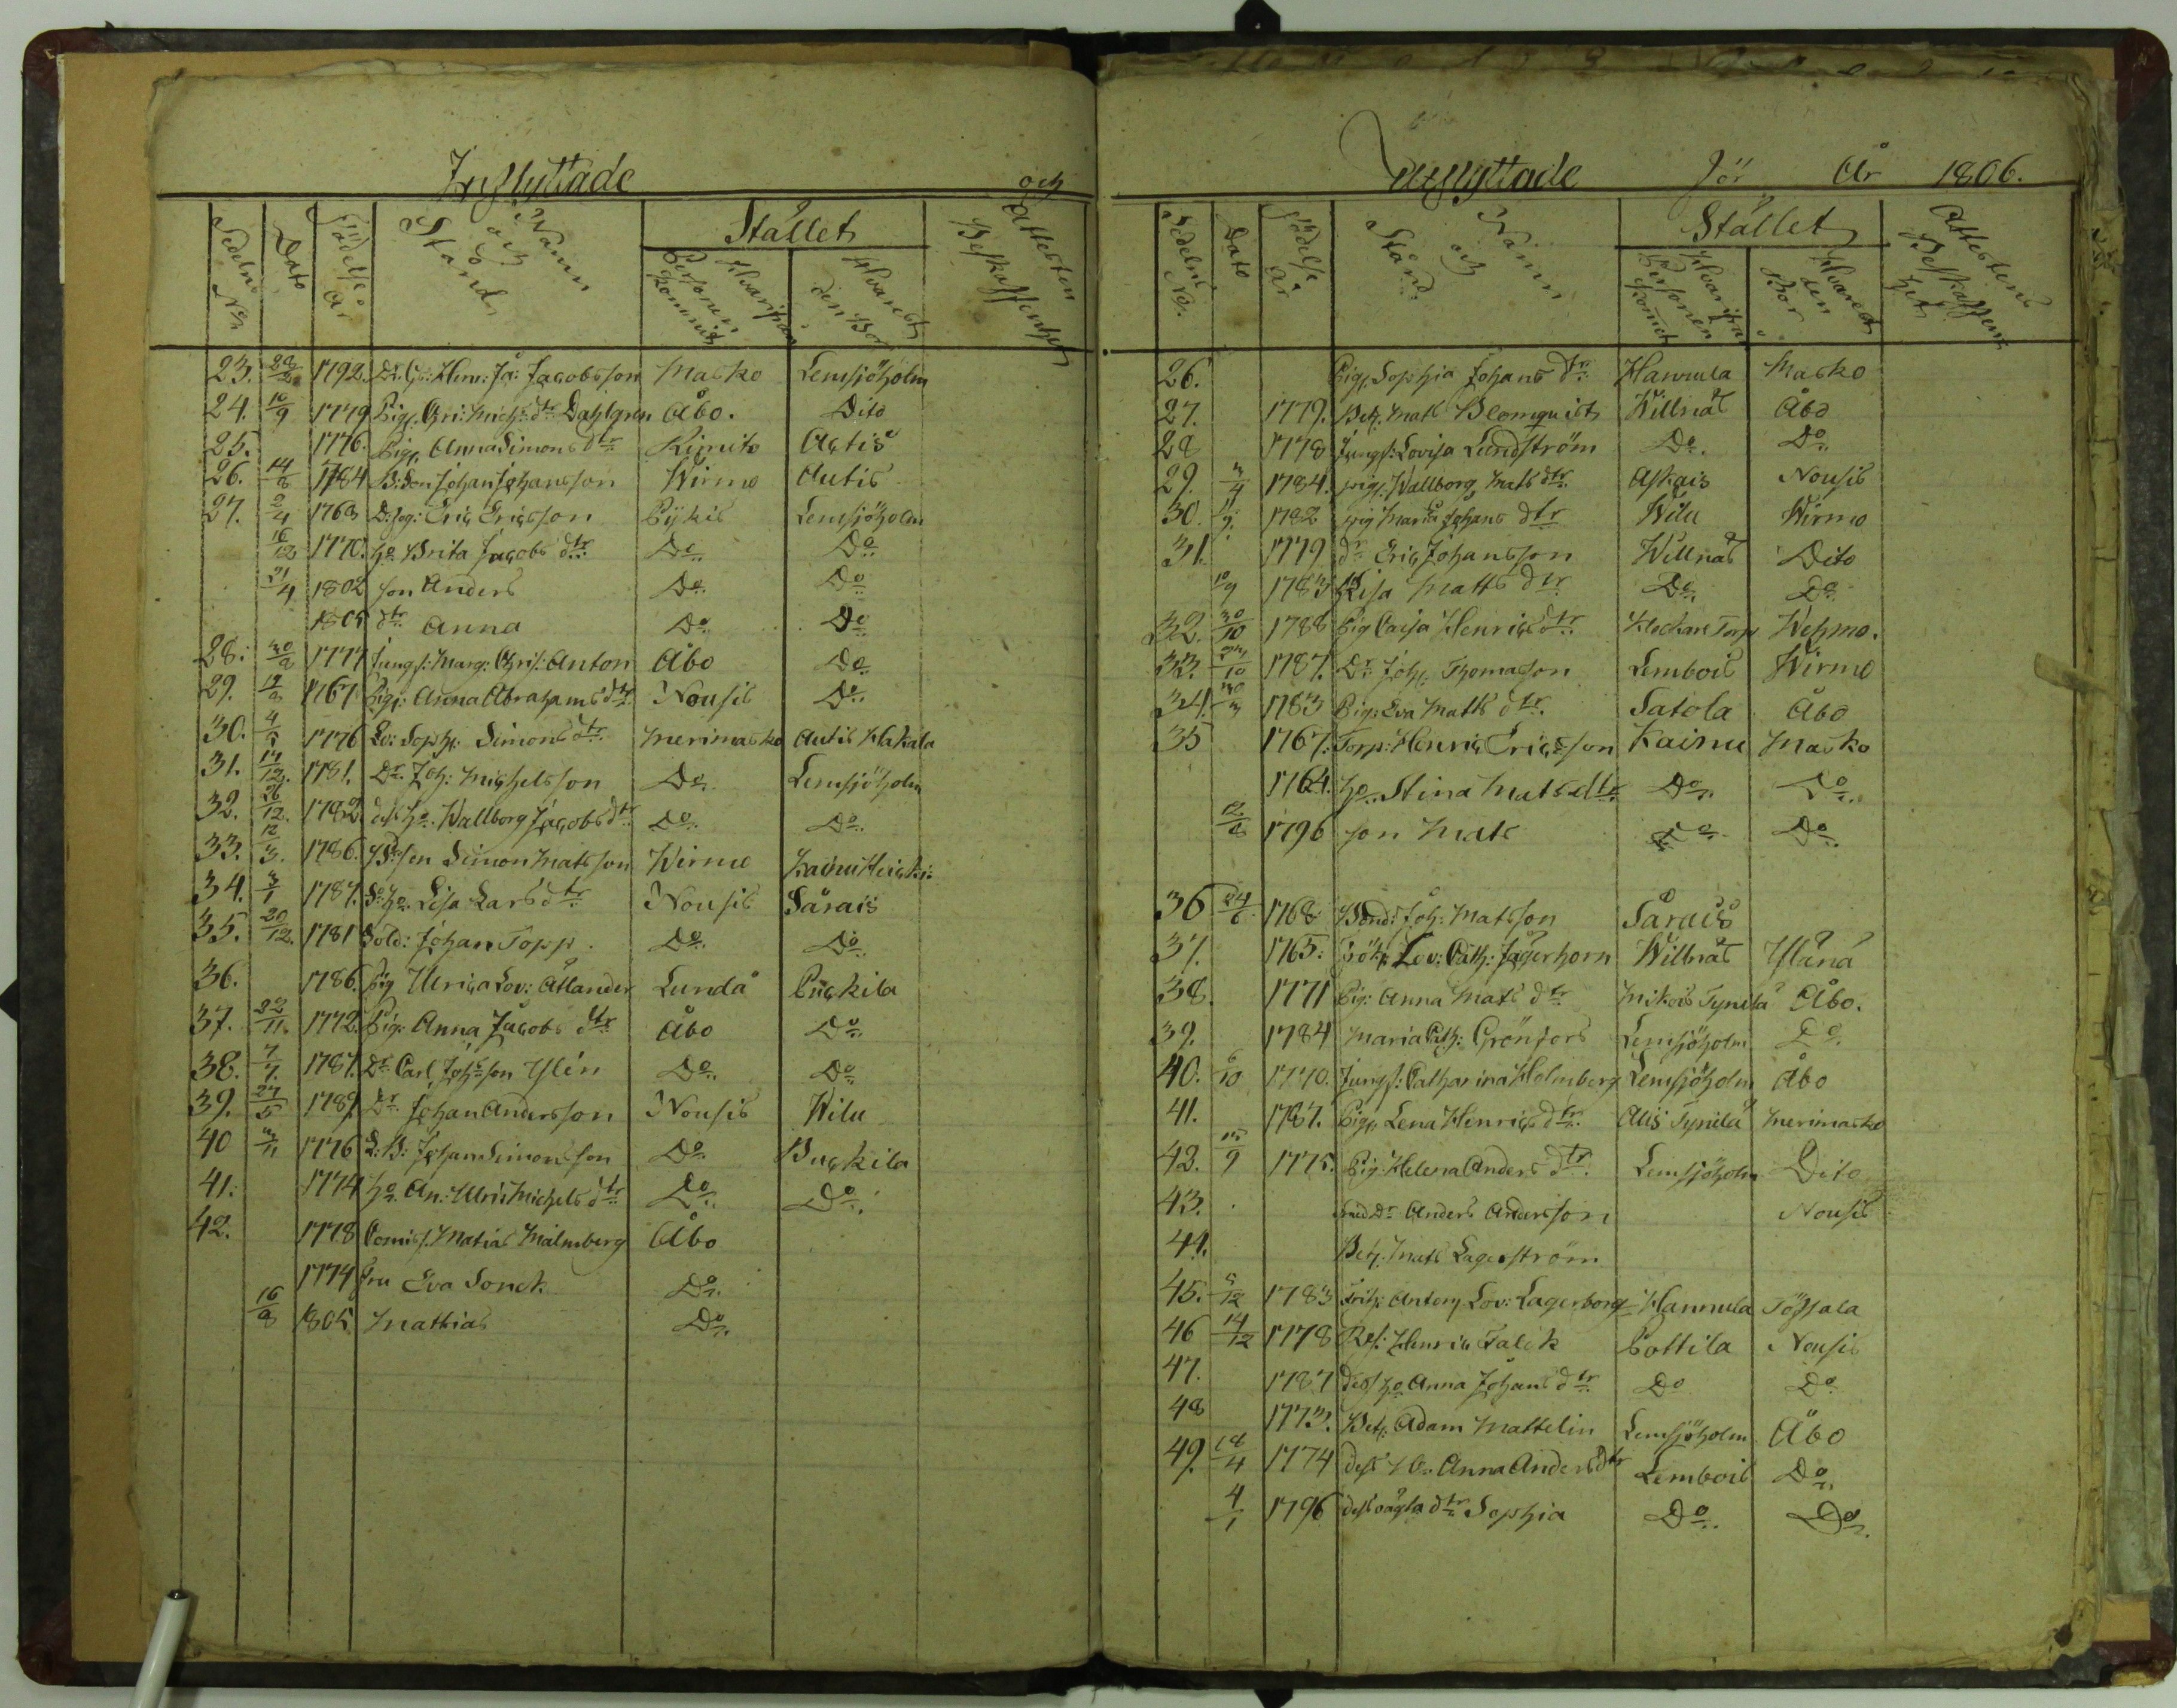 Inflyttade och
Sedelns No
Dato
Födelse år
Namn och Stånd
Stället
Hvarifrån Personen kommit
Hvarest den Bor
Attesten Beskaffenhet
23. 1792. Jacobsson Masko Lemsjöholm
24. 10/9 1779 Pig. Dahlgren Åbo. Dito
25. 1776. Pig. Anna Simons dtr Kimito Autis
26. 14/8 1784 B: Son Johan Johansson Wirmo Autis
27. 2/4 1763 Eric Ericsson Pykis Lemsjöholm
16/12 1770. ho Brita Jacobs dtr Do Do
21/4 1802 son Anders Do Do
1805 dtr Anna Do Do
28. 30/9 1777 Jungf: Marg: Chris: Anton Åbo Do
29. 1767 Pig: Anna Abrahams dtr Nousis Do
30. 1776 Lo: Soph: Simons dtr Merimasko Autis Hakala
31. 17/12. 1781. Dr. Joh: Michelsson Do Lemsjöholm
32. 26/12. 1782 des ho Wallborg Jacobs dtr Do Do
33. 12/3. 1786. B: son Simon Matsson Wirmo
34. 3/1 1787. Lisa Lars dtr Nousis Särais
35. 20/12. 1781 Sold: Johan Topp. Do Do
36. 1786. Pig Ulrica Lov: Ållander Lundå Puckila
37. 22/11. 1772. Pig: Anna Jacobs dtr Åbo Do
38. 7/7. 1787. Dr. Carl Johsson Ylin Do Do
39. 27/5 1789. Dr. Johan Andersson Nousis Wilu
40 3/11 1776 Johan Simonsson Do Buckila
41: 1774 ho An: Ulric: Michels dtr Do Do
42. 1778 Comiss. Matias Malmberg Åbo
1774 fru Eva Sonck Do
16/8 1805 Mathias Do
Utflyttade för År 1806.
Sedelns No.
Dato
Födelse år
Namn och Stånd
Stället
Hvarifrån Personen komit
Hvarest den Bor
Attestens Beskaffenhet
26. Pig. Sophia Johans dr Hannula Masko
27. 1779. Betj. Mats Blomquist Willnäs Åbo
28 1778 Jungf: Lovisa Lundström Do. Do
29. 3/4 1784. pig. Wallborg Mats dtr. Askais Nousis
30. 1782 pig Maria Johans dtr Wilu Wirmo
31. 1779 dr Eric Johansson Willnäs Dito
10/9 1783 Lisa Matts dtr Do Do
32. 30/10 1788 Pig Caisa Henrics dtr Torp Wehmo.
33. 1787. Dr. Joh: Thomasson Lembois Wirmo
34. 30/3 1783 Pig: Eva Matts dtr. Satola Åbo
35 1767. Torp: Henric Ericsson Kainu Masko
1764. ho Stina Mats dtr Do Do
12/8 1796 son Mats Do Do
36 24/6 1768 Bond: Joh: Matsson Särais
37. 1765: Frök: Lov: Cath: Jägerhorn Willnäs Yläna
38. 1771 Pig: Anna Mats dtr Mikois Tynilä Åbo.
39. 1784 Maria Cath: Grönfors Lemsjöholm Do
40. 6/10 1770. Jungf: Catharina Holmberg Lemsjöholm Åbo
41. 1787. Pig. Lena Henrics dtr. Alis Tynilä Merimasko
42. 15/9 1775. Pig: Helena Anders dtr. Lemsjöholm Dito
43. Smed dr Anders Andersson Nousis
44. Betj. Mats Lagerström
45. 5/12 1783 Lov: Lagerborg Hannula Töfsala
46 14/12 1778 Ref: Henric Falck Pottila Nousis
47. 1787 dess ho Anna Johans dtr Do Do
48 1773. Betj. Adam Mattelin Lemsjöholm Åbo
49. 18/4 1774 dess Anna Anders dtr Lembois Do
4/1 1796 dess oägta dtr Sophia Do Do